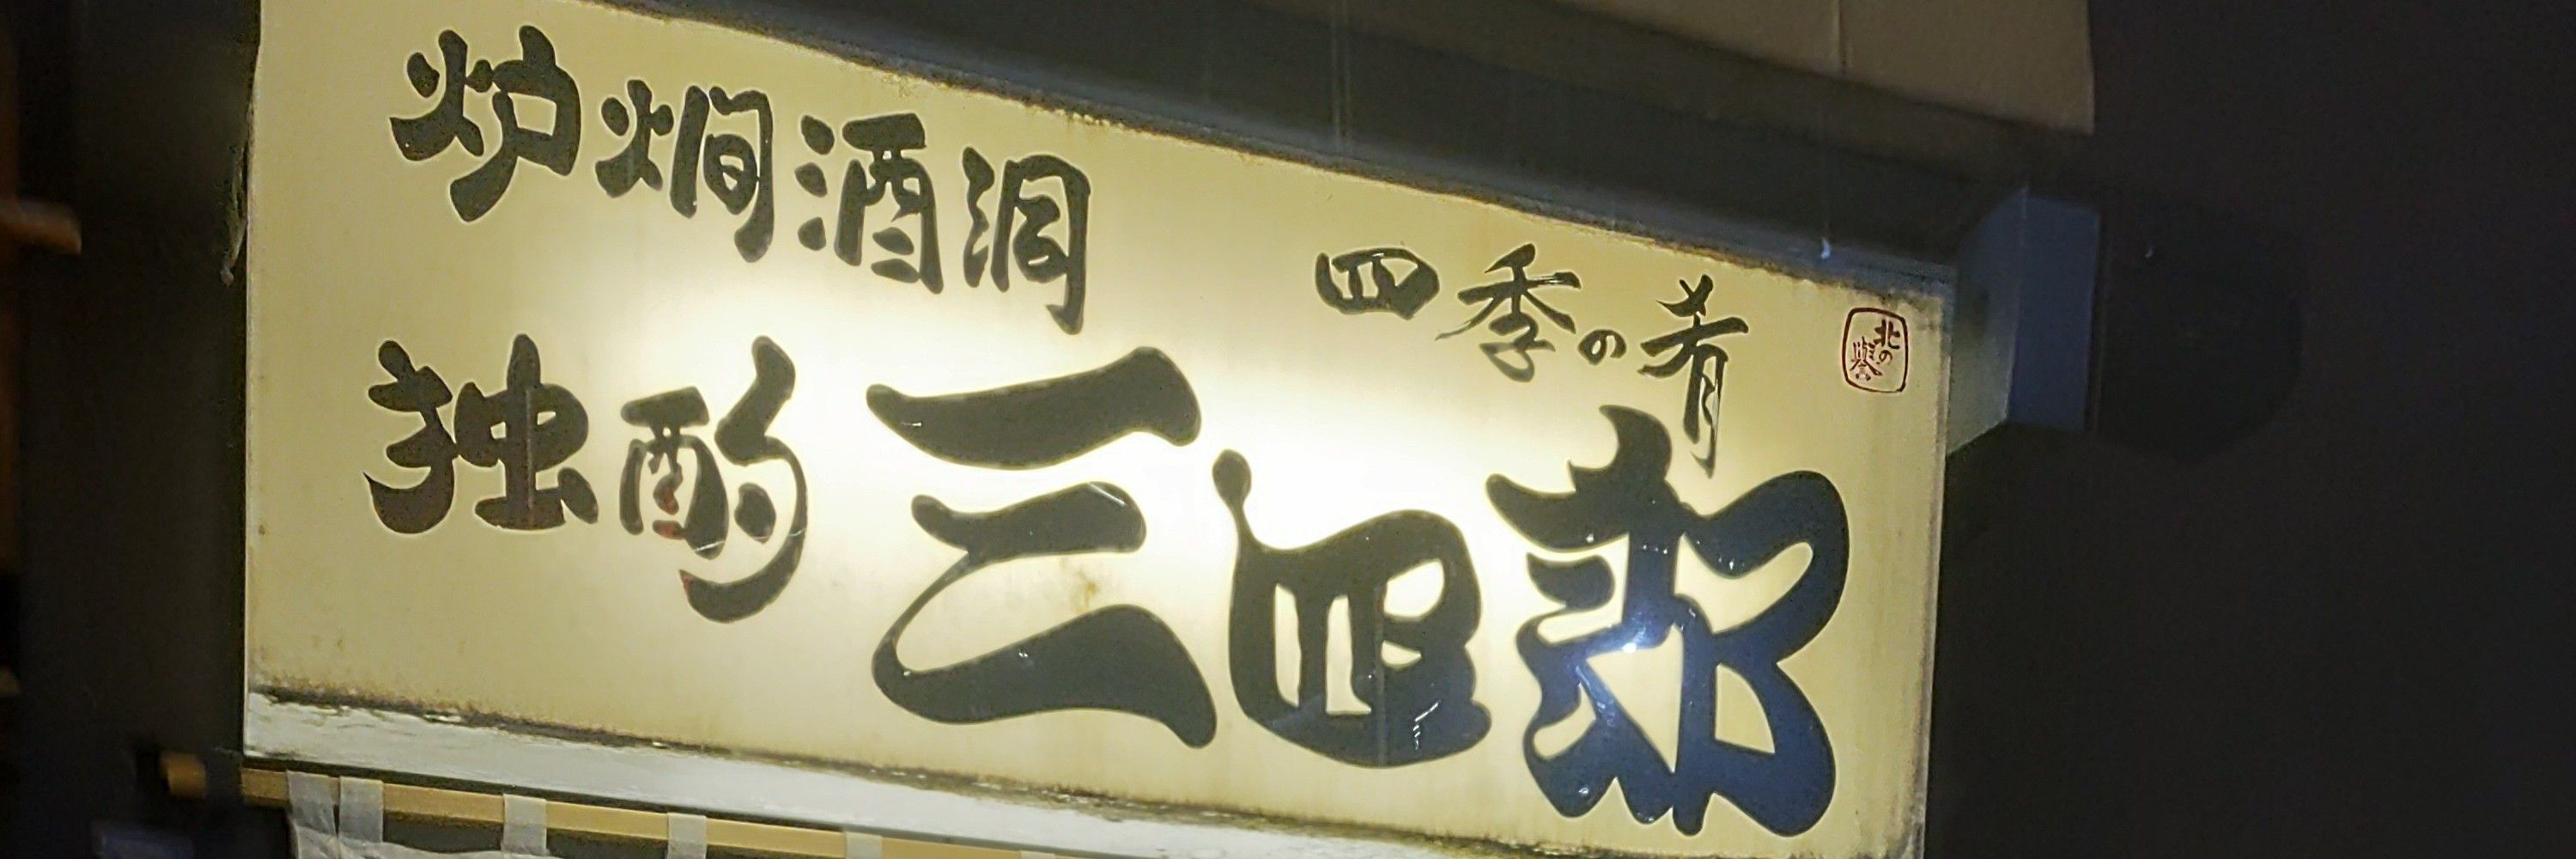 炉燗酒洞
四季の肴
独酌 三四郎
北の誉